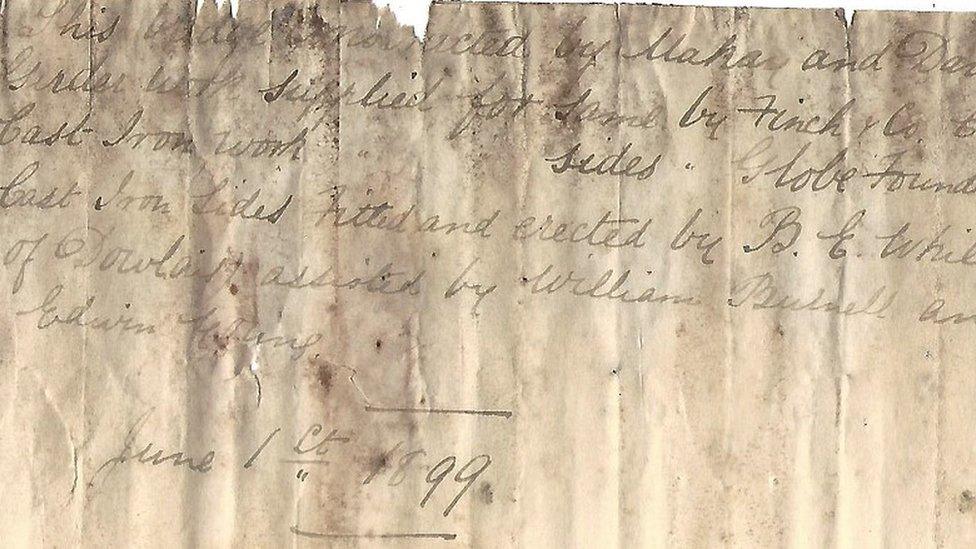 This bridge constructed by Mahar and Dav
Girder work supplied for same by Finch & Co
Cast Iron work " sides " Globe Found
Cast Iron Sides Fitted and erected by B. E. Whi
of Dowlais assisted by William Bunnell an
Edwin
June 1st 1899.